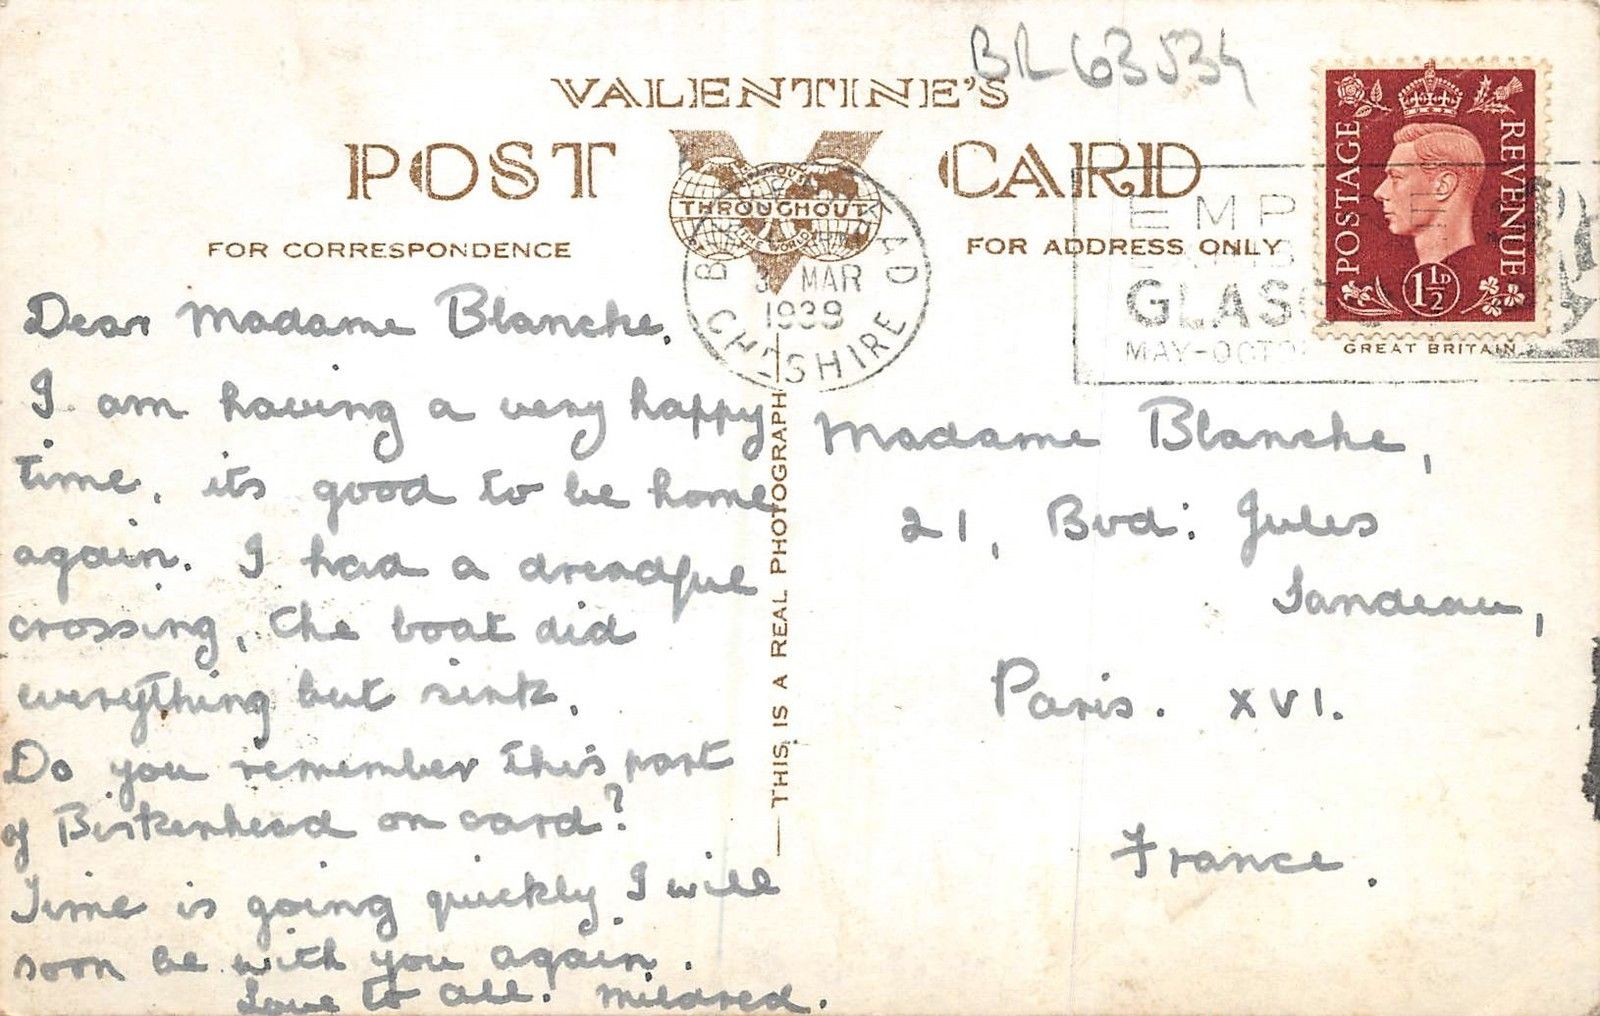 BR 63534
VALENTINE'S
POST CARD
FAMOUS
THROUGHOUT
THE WORLD
FOR CORRESPONDENCE
FOR ADDRESS ONLY
BIRKENHEAD
MAR
CHESHIRE
EMP
GLASG
MAY-OCTO
POSTAGE
REVENUE
1½D
GREAT BRITAIN
Dear Madame Blanche,
I am having a very happy
time, its good to be home
again. I had a dreadful
crossing, the boat did
everything but sink.
Do you remember this part
of Birkenhead on card?
Time is going quickly I will
soon be with you again.
Love to all. Mildred.
THIS IS A REAL PHOTOGRAPH
Madame Blanche,
21, Bvd: Jules
Sandeau,
Paris. XVI.
France.